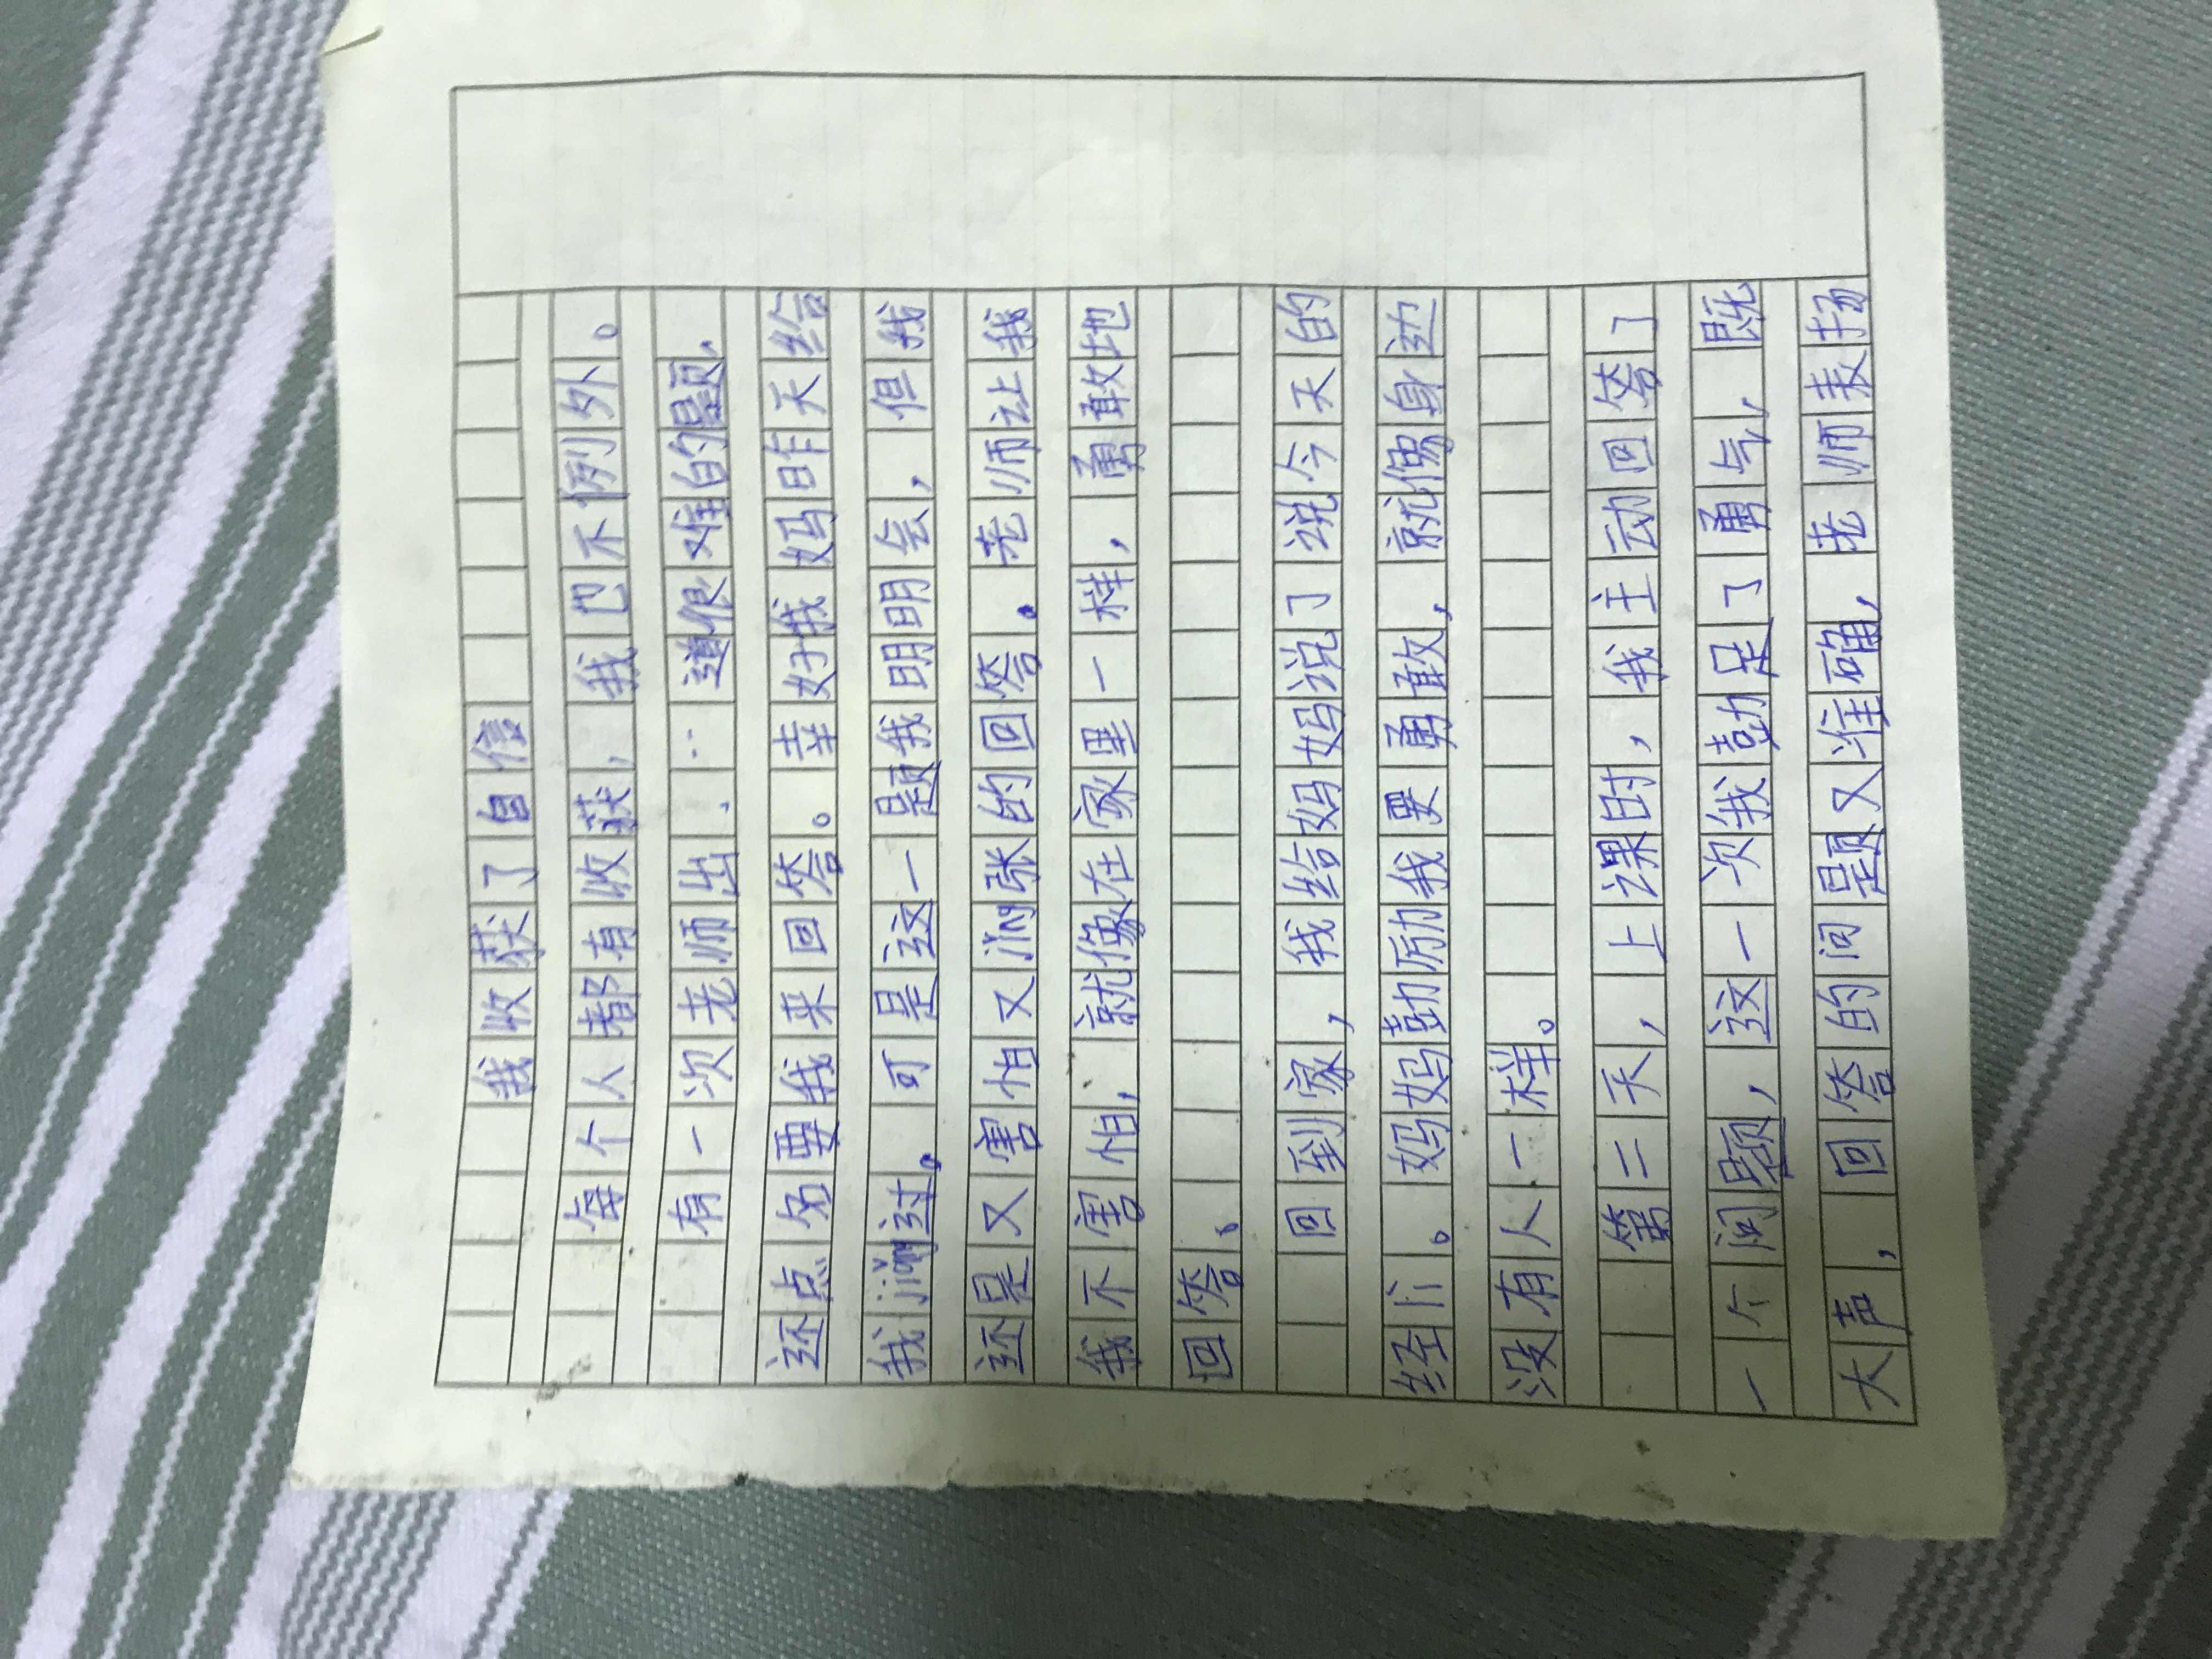 我收获了自信
每个人都有收获，我也不例外。
有一次老师出 道很难的题，
还点名要我来回答。幸好我妈昨天给
我jiǎng过。可是这一题我明明会，但我
还是又害怕又jǐng张的回答。老师让我
我不害怕，就像在家里一样，勇敢地
回答、
回到家，我给妈妈说了说今天的
经li。妈妈鼓励我要勇敢，就像身边
没有人一样。
第二天，上课时，我主动回答了
一个问题，这一次我鼓足了勇气，既
大声，回答的问题又准确，老师表扬